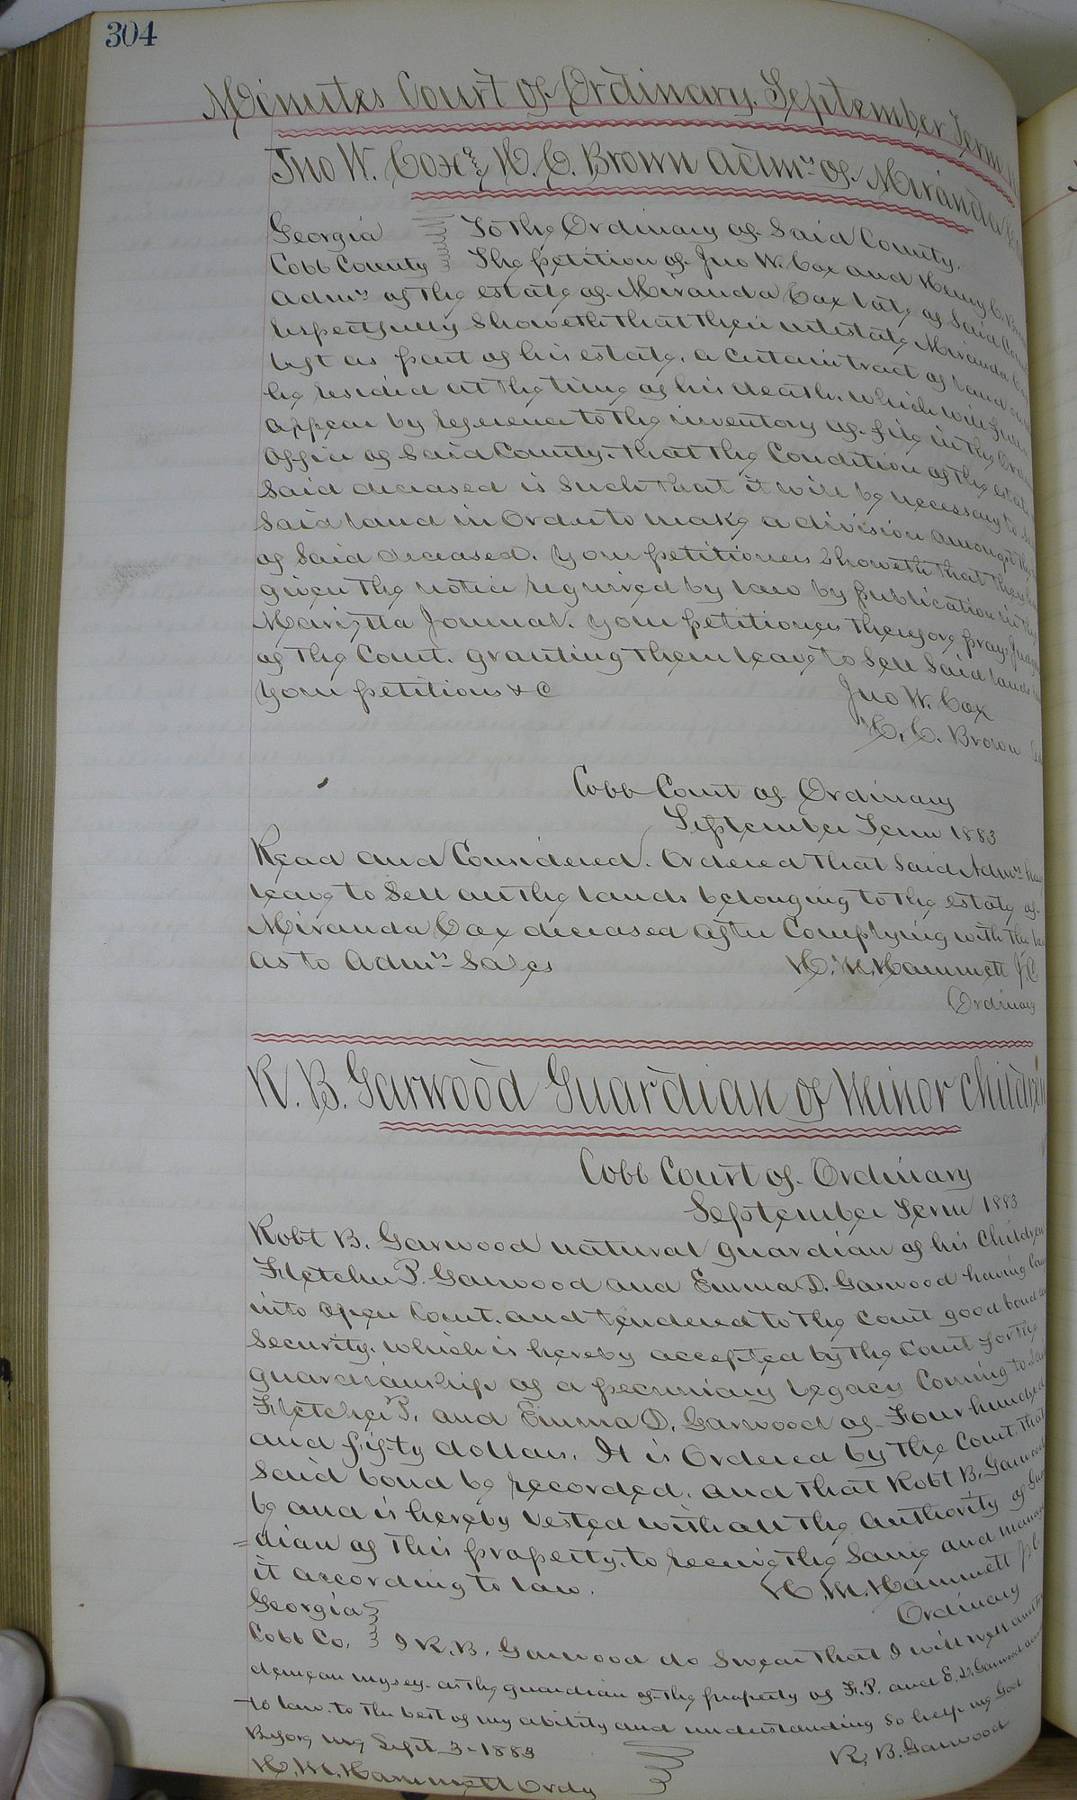 304
Minutes Court of Ordinary, September Term
Jno W. Cox & H. C. Brown Admrs of Miranda
Georgia To the Ordinary of Said County.
Cobb County The petition of Jno W. Cox and Henry C.
Admrs of the estate of Miranda Cox late of Said
respectfully Showeth that their intestate Miranda
left as part of his estate, a certain tract of land
he resided at the time of his death, which will
appear by reference to the inventory of file in the
Office of Said County. That the Condition of the
Said deceased is Such that it will be necessary to
Said land in Order to make a division amongst the
of Said deceased. Your petitioners Showeth that they
given the notice required by law by publication in the
Marietta Journal. Your petitioners therefore pray
of the Court, granting them leave to Sell Said lands
Your petitions &c Jno W. Cox
H. C. Brown
Cobb Court of Ordinary
September Term 1883
Read and Considered. Ordered that Said Admrs have
leave to Sell all the lands belonging to the estate of
Miranda Cox deceased after Complying with the
as to Admrs Sales H. M. Hammett
Ordinary
R. B. Garwood Guardian of Minor Children
Cobb Court of Ordinary
September Term 1883
Robt B. Garwood natural guardian of his Children
Fletcher P. Garwood and Emma D. Garwood having
into open Court, and tendered to the Court good bond
Security, which is hereby accepted by the Court for the
guardianship of a pecuniary legacy Coming to
Fletcher P. and Emma D. Garwood of Four hundred
and fifty dollars. It is Ordered by the Court that
Said bond be recorded, and that Robt B. Garwood
be and is hereby vested with all the Authority of
=dian of this property, to receive the Same and
it according to law. H. M. Hammett
Ordinary
Georgia
Cobb Co. I R. B. Garwood do Swear that I will well
demean myself as the guardian of the property of F. P. and E. D. Garwood
to law, to the best of my ability and understanding So help my God
Before me Sept 3-1883 R. B. Garwood
H. M. Hammett Ordy